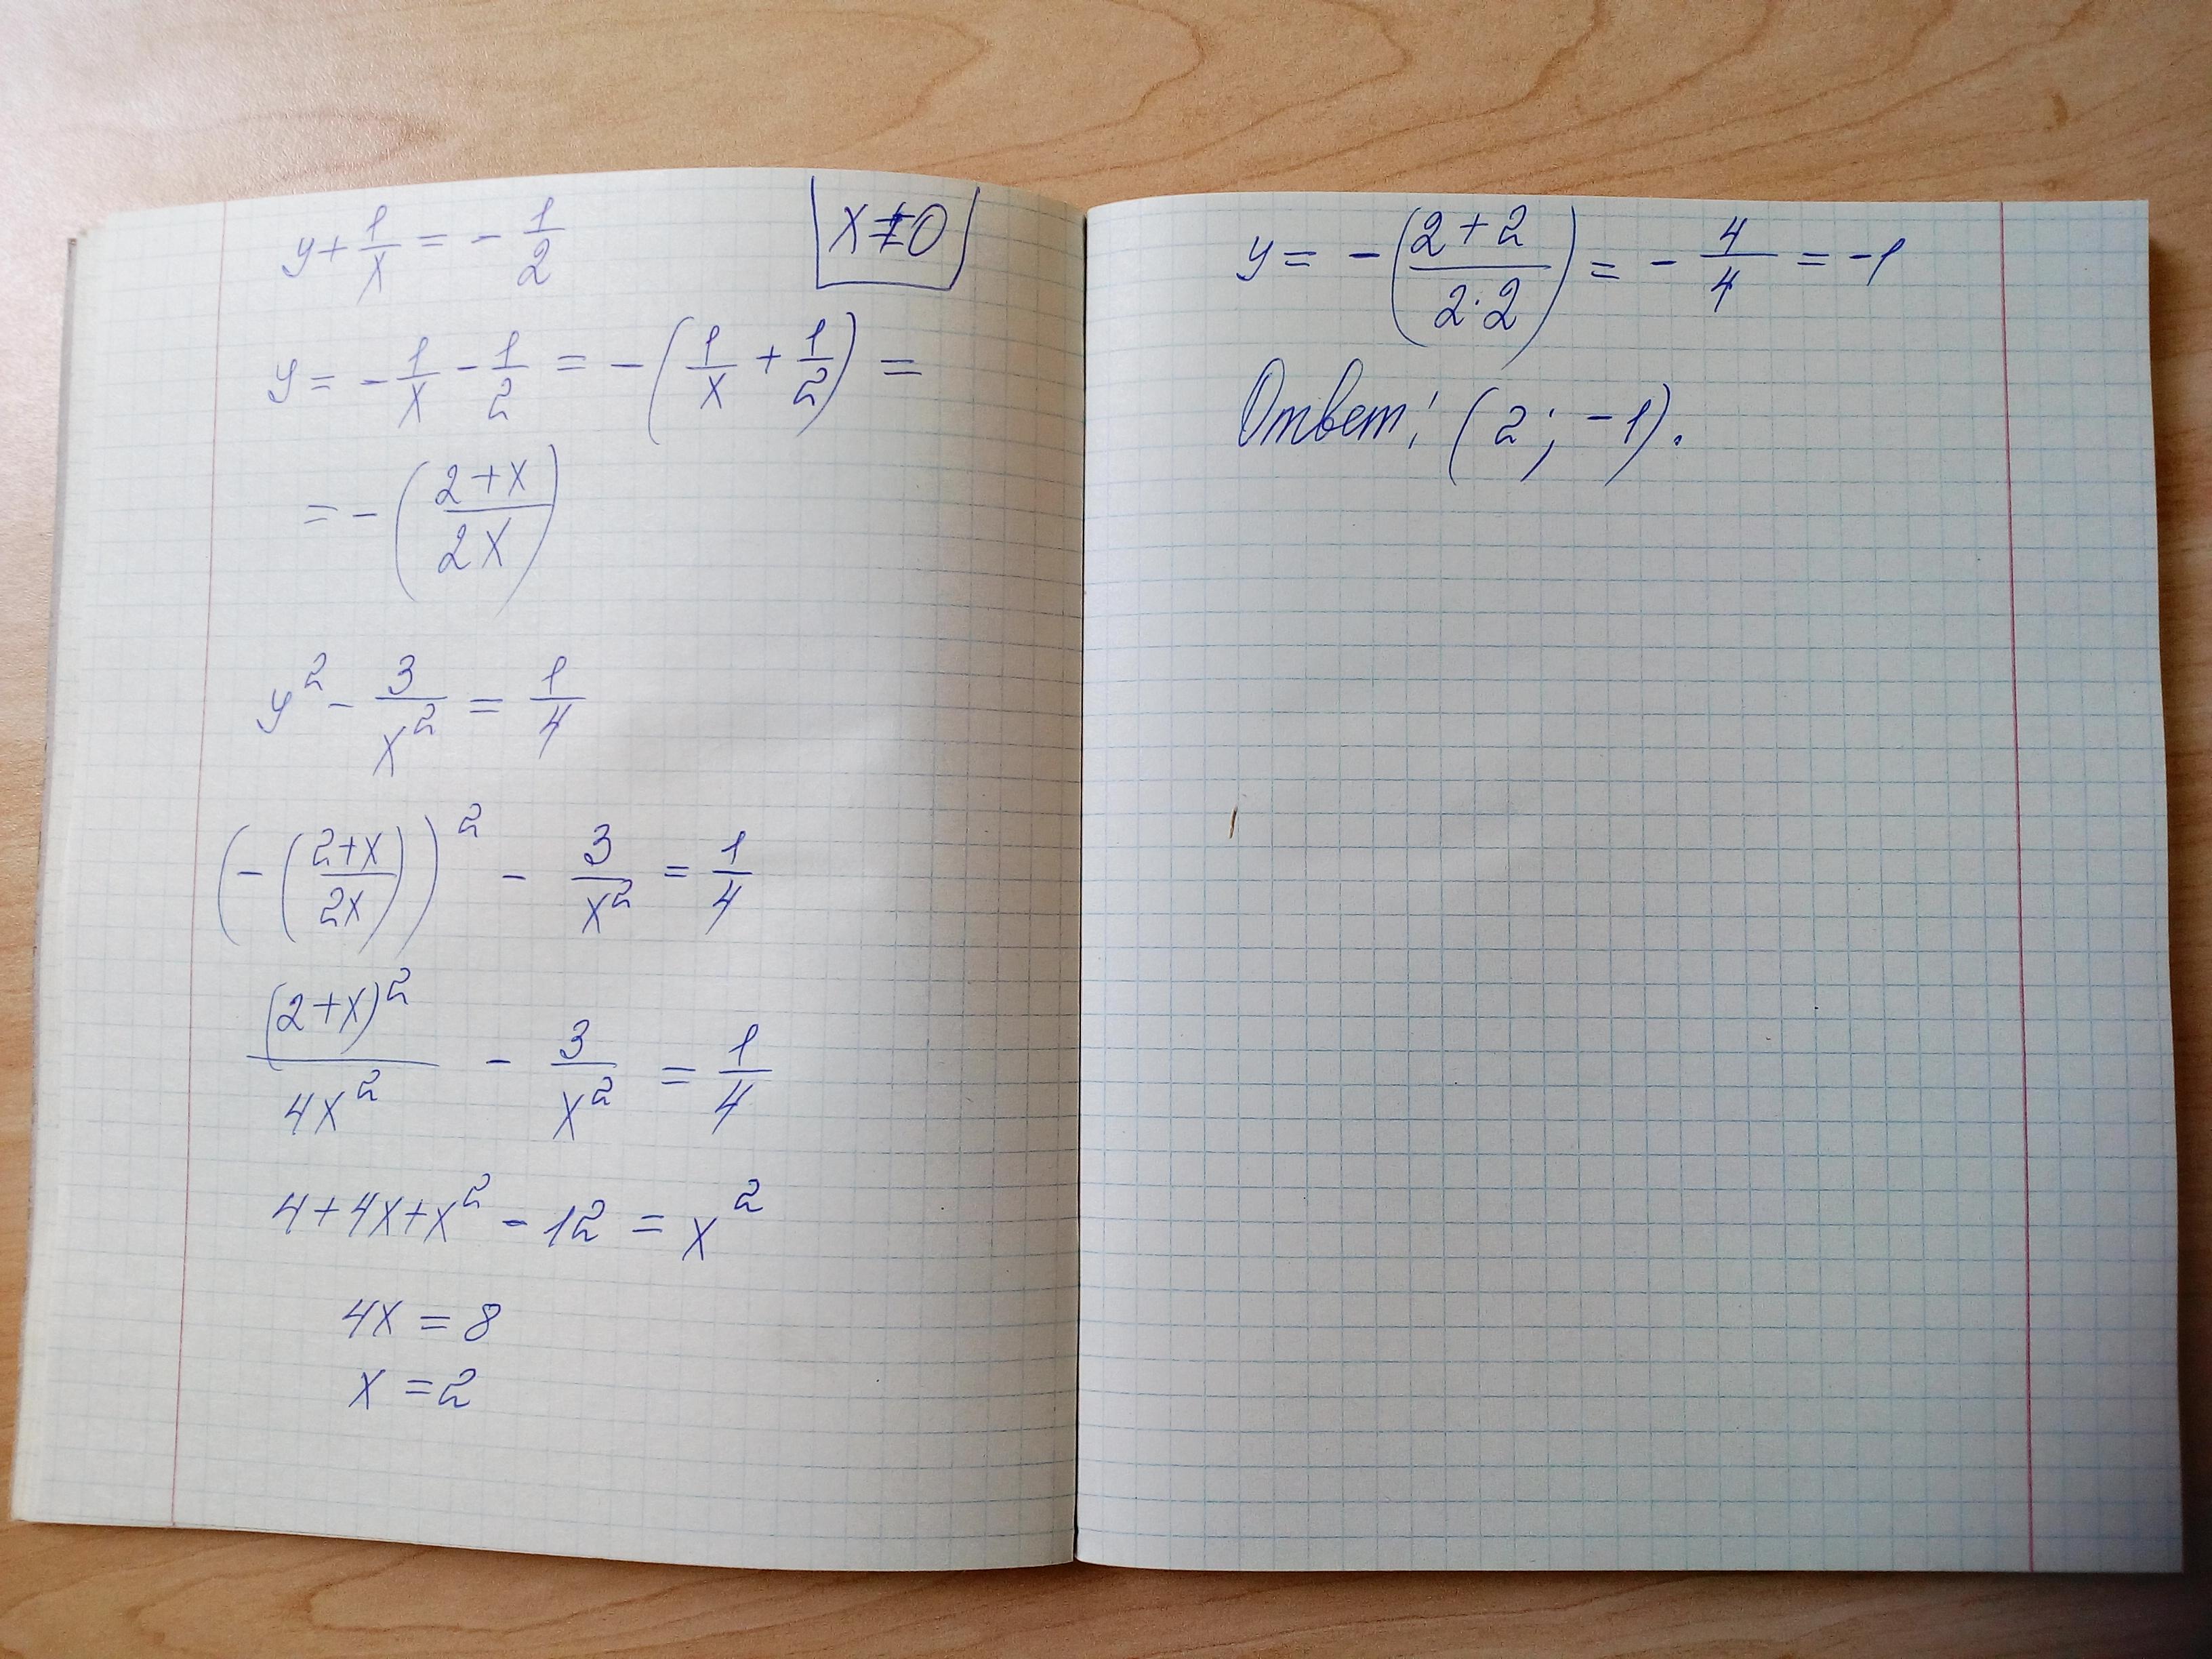 y + 1/x = - 1/2
x ≠ 0
y = - 1/x - 1/2 = - (1/x + 1/2) =
= - ((2+x)/(2x))
y² - 3/x² = 1/4
(- ((2+x)/(2x)))² - 3/x² = 1/4
(2+x)²/(4x²) - 3/x² = 1/4
4 + 4x + x² - 12 = x²
4x = 8
x = 2
y = - ((2+2)/(2·2)) = - 4/4 = -1
Ответ: (2; -1).